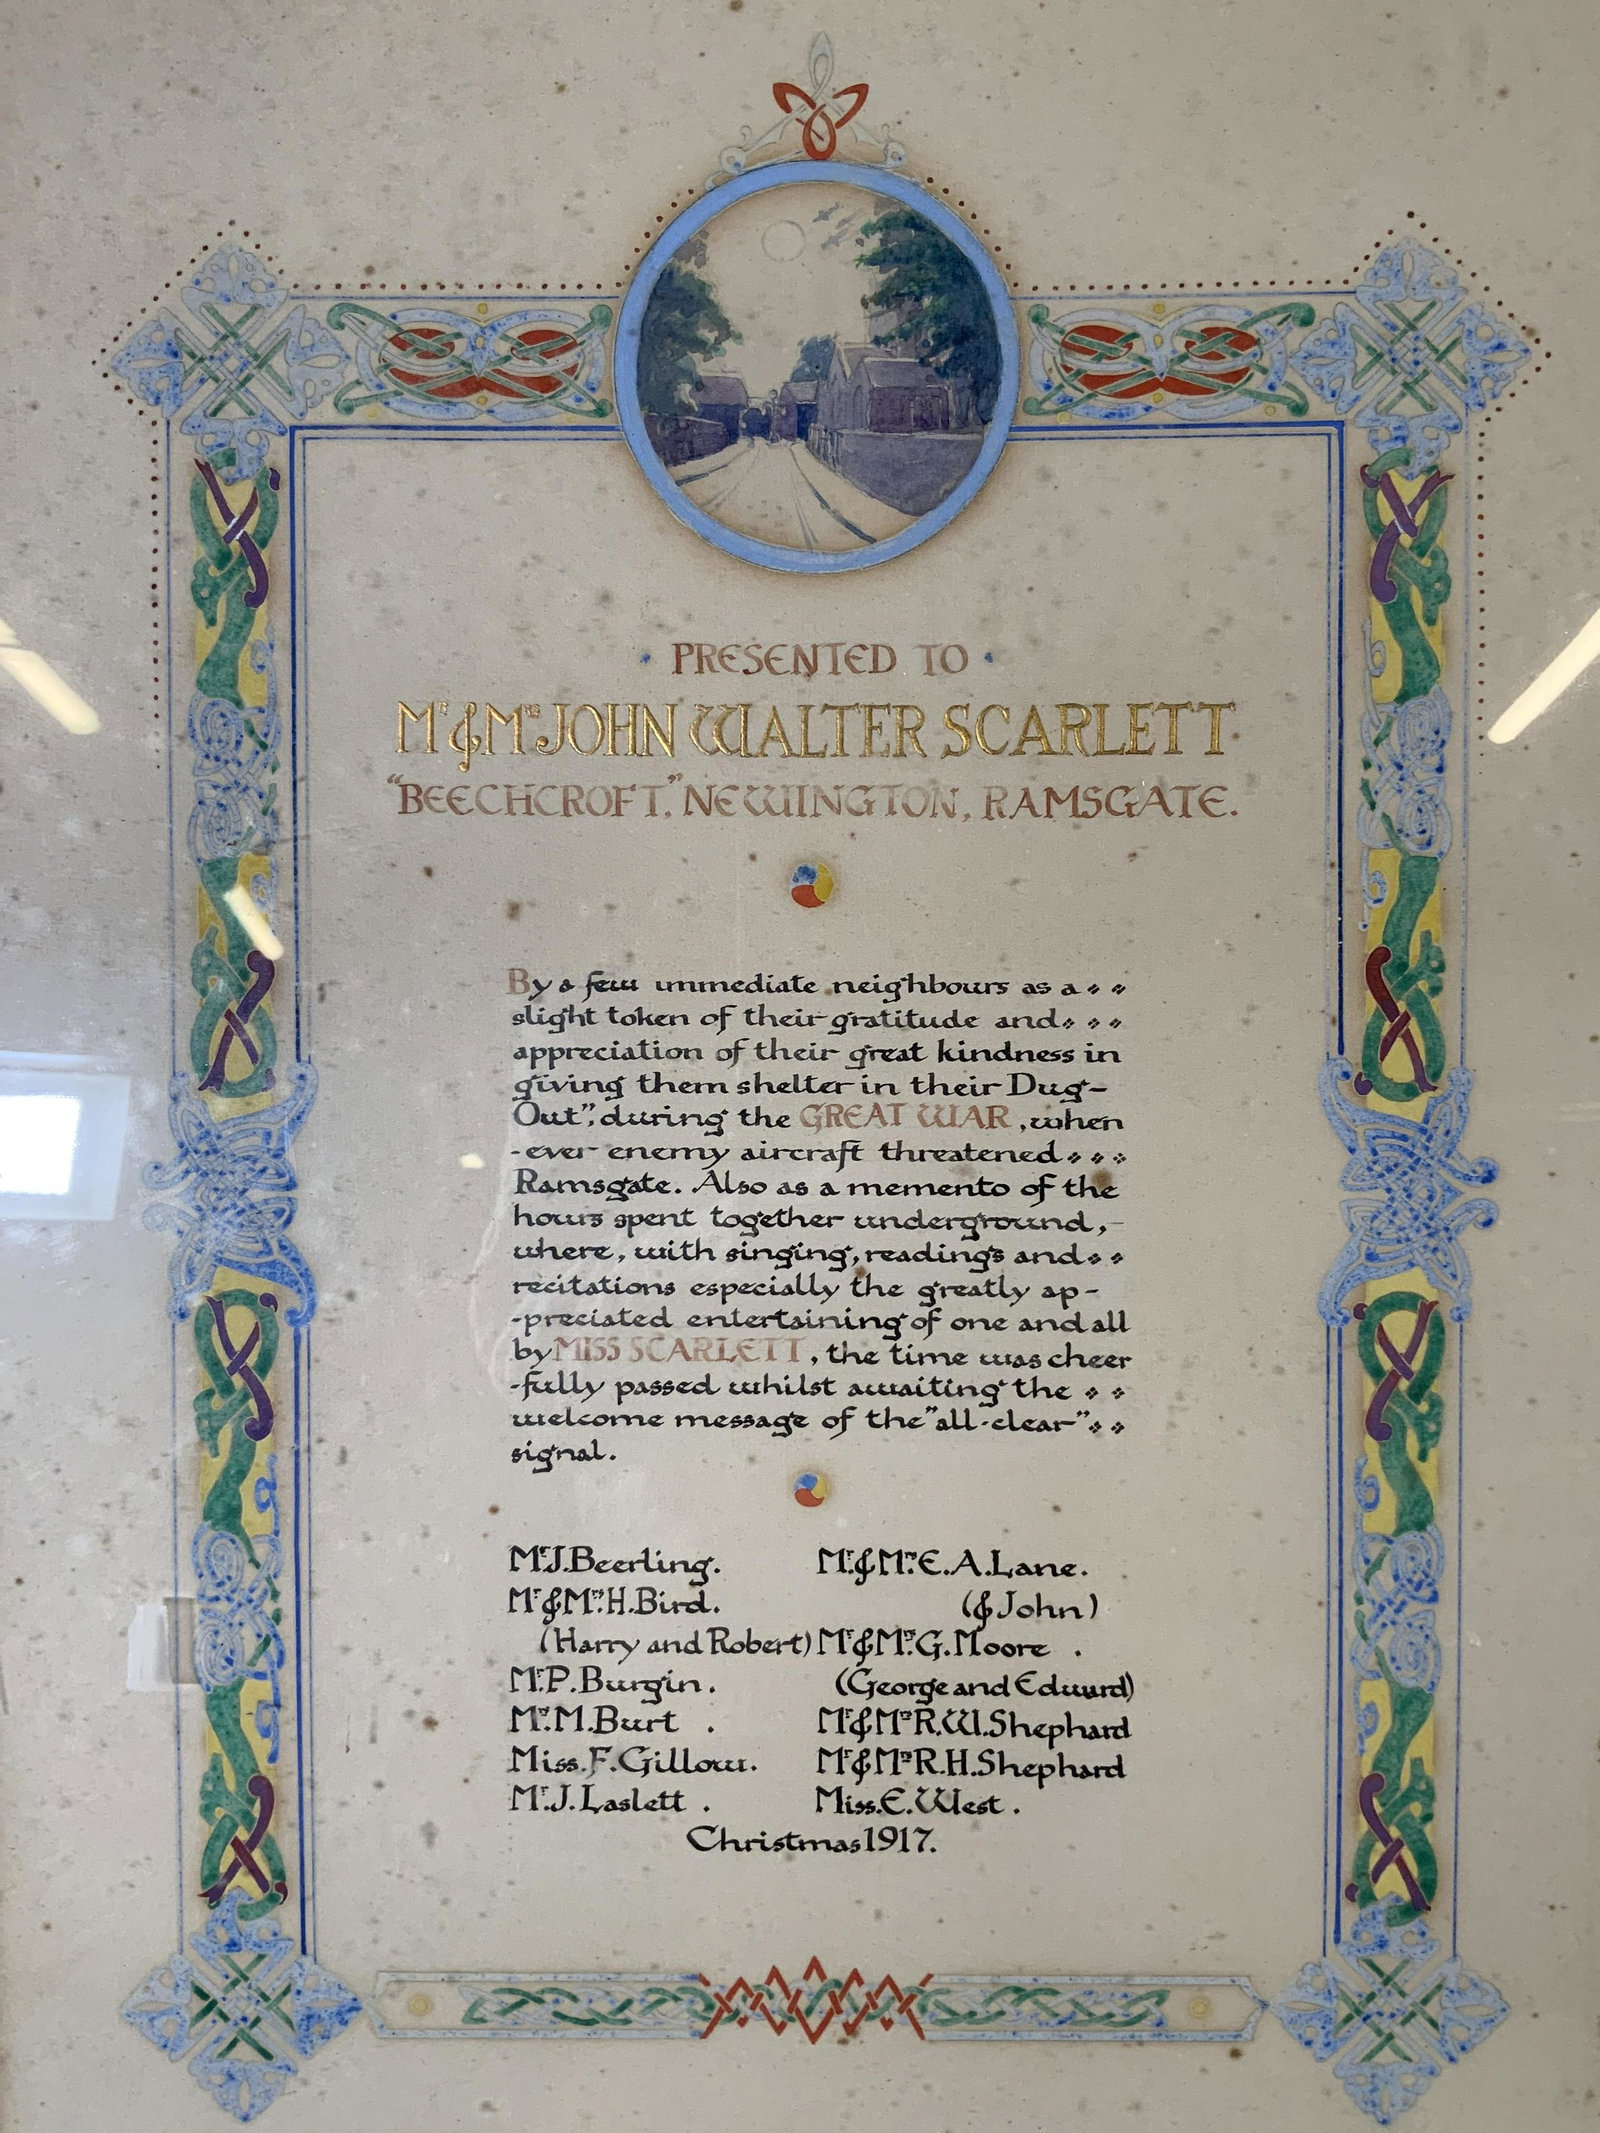 PRESENTED TO
Mr & Mrs JOHN WALTER SCARLETT
"BEECHCROFT," NEWINGTON, RAMSGATE.
By a few immediate neighbours as a
slight token of their gratitude and
appreciation of their great kindness in
giving them shelter in their Dug-
Out", during the GREAT WAR, when
-ever enemy aircraft threatened
Ramsgate. Also as a memento of the
hours spent together underground,-
where, with singing, readings and
recitations especially the greatly ap-
-preciated entertaining of one and all
by MISS SCARLETT, the time was cheer
-fully passed whilst awaiting the
welcome message of the "all-clear"
signal.
Mr J. Beerling.
Mr & Mrs H. Bird.
(Harry and Robert)
Mr P. Burgin.
Mrs M. Burt.
Miss. F. Gillow.
Mr J. Laslett.
Mr & Mrs E. A. Lane.
(& John)
Mr & Mrs G. Moore.
(George and Edward)
Mr & Mrs R. W. Shephard
Mr & Mrs R. H. Shephard
Miss. E. West.
Christmas 1917.